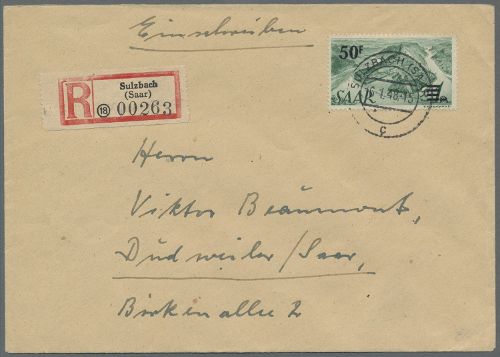 Einschreiben
50F
SAAR
SULZBACH (SA
16.1.48-15
c
R
Sulzbach
(Saar)
18 00263
Herrn
Viktor Beaumont,
Dúdweiler/Saar,
Birkenallee 2